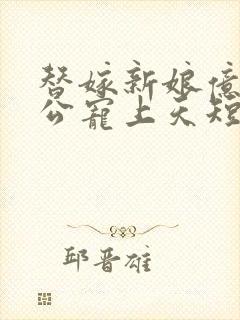 替嫁新娘億
公寵上天短
邱晋雄